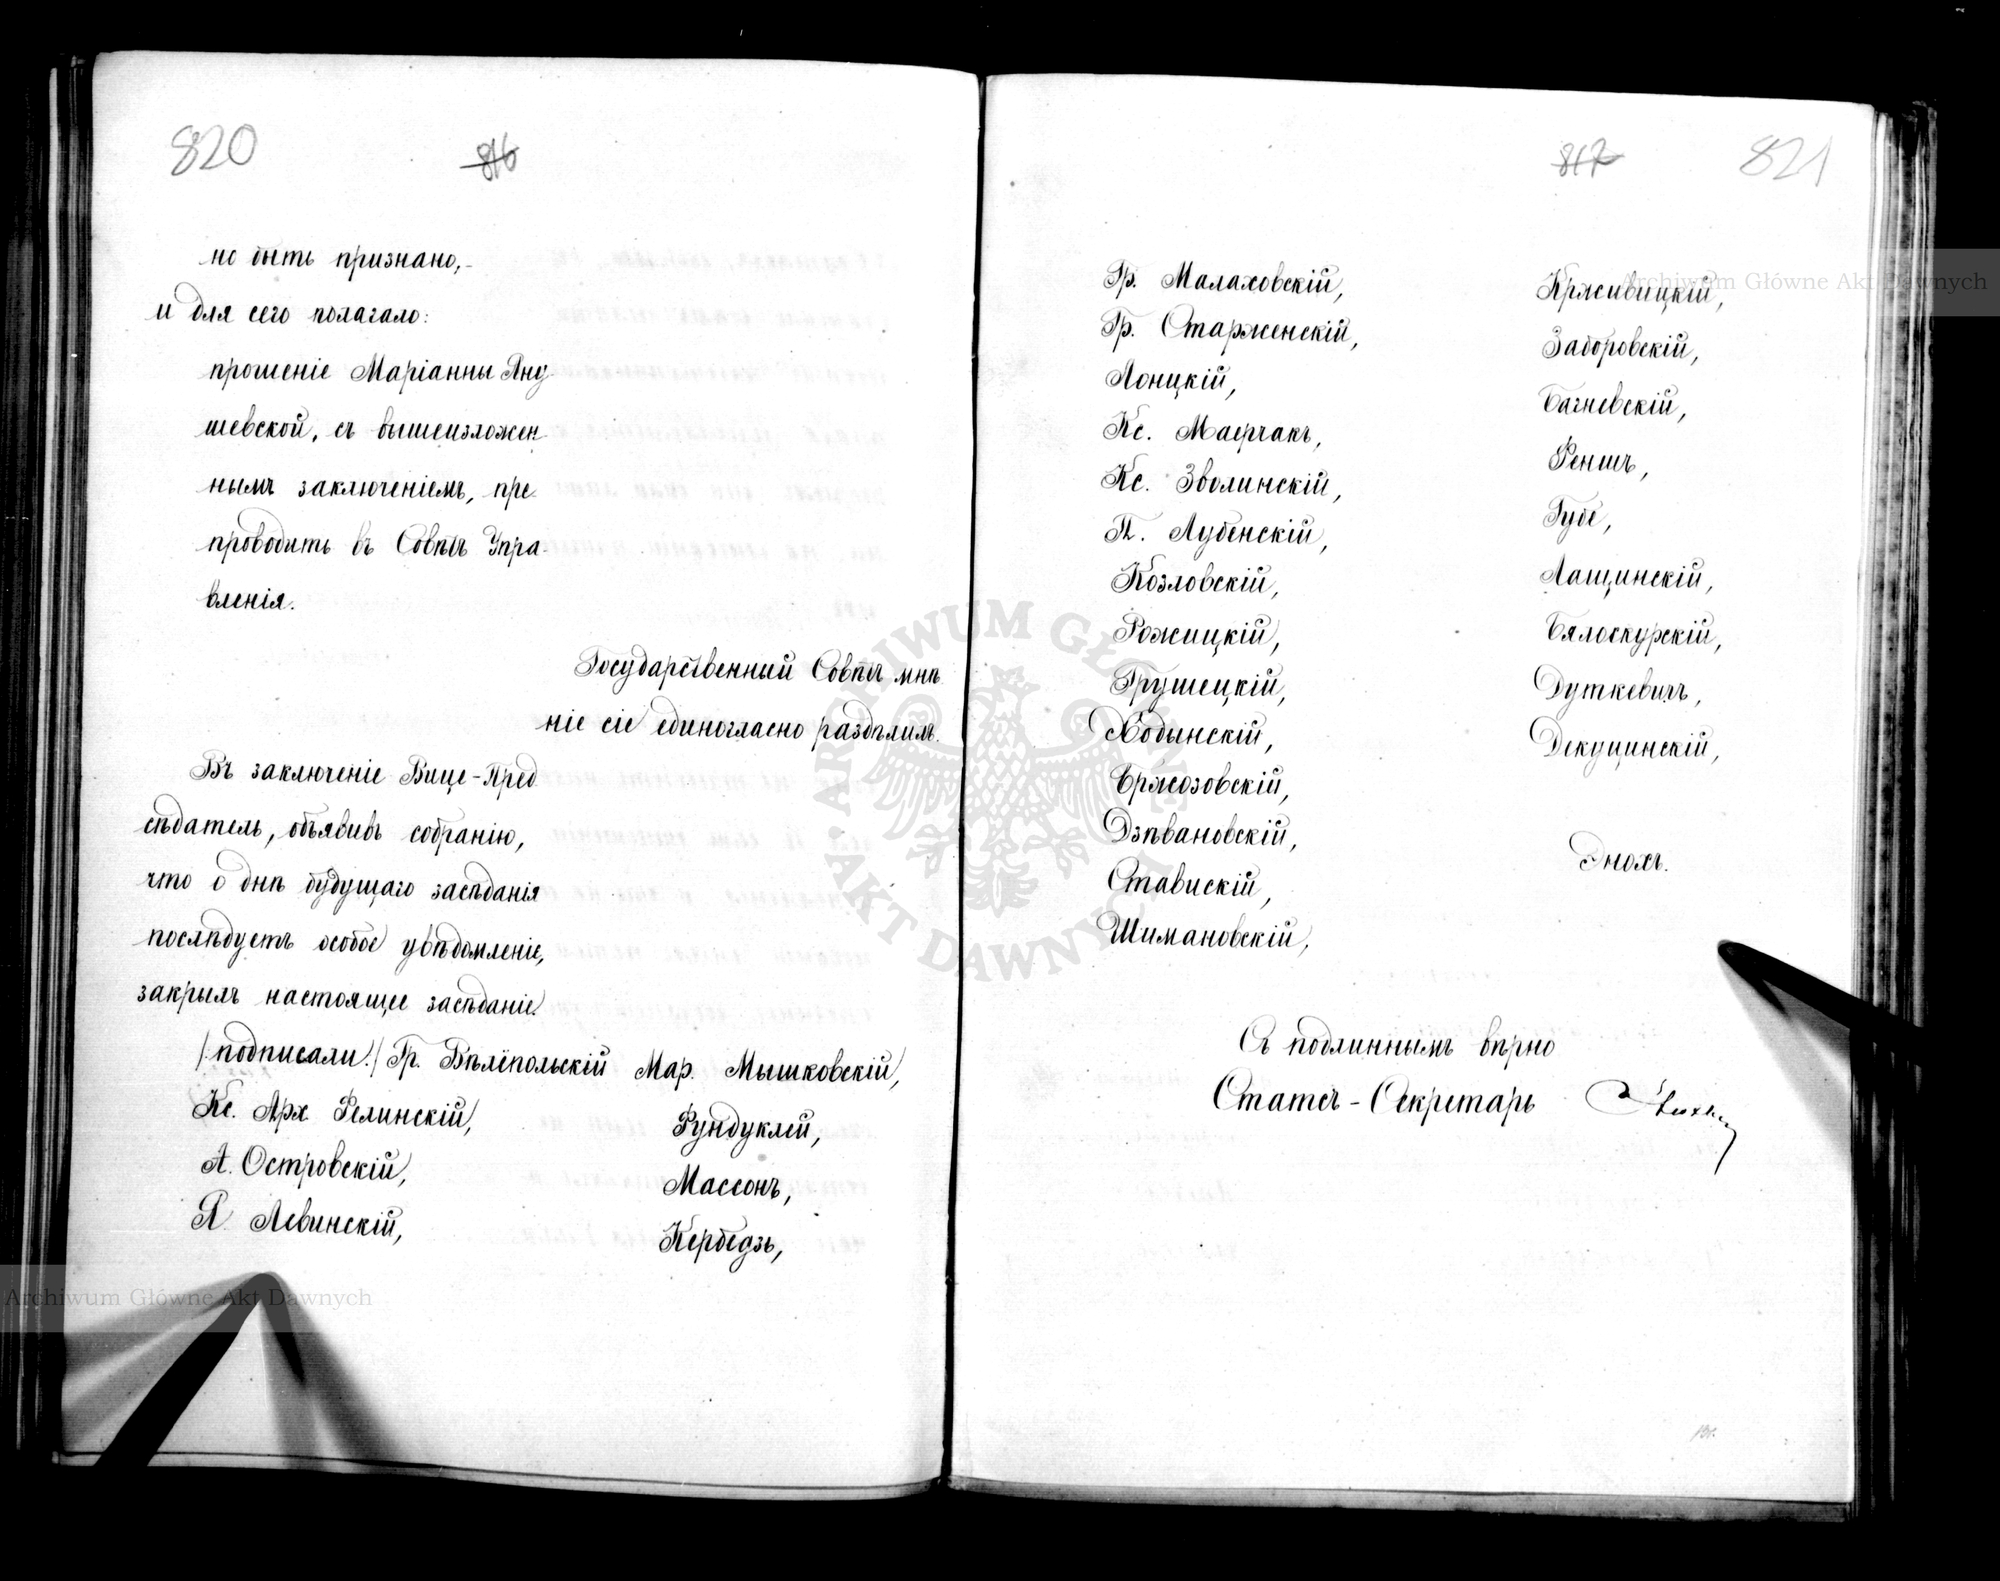 820
816
но быть признано,
и для сего полагало:
прошеніе Маріанны Яну-
шевской, съ вышеизложен
нымъ заключеніемъ, пре
проводить въ Совѣтъ Упра-
вленія.
Государственный Совѣтъ мнѣ
ніе сіе единогласно раздѣлилъ.
Въ заключеніе Вице-Пред
сѣдатель, объявивъ собранію,
что о днѣ будущаго засѣданія
послѣдуетъ особое увѣдомленіе,
закрылъ настоящее засѣданіе.
/подписали:/ Гр. Вѣлёпольскій Мар. Мышковскій,
Кс. Арх Фелинскій,
Рундуклей,
А. Островскій,
Массонъ,
Я Левинскій,
Кербедзъ,
817
821
Гр. Малаховскій,
Гр. Старженскій,
Лонцкій,
Кс. Маерчакъ,
Кс. Зволинскій,
П. Лубенскій,
Козловскій,
Рожицкій,
Грушецкій,
Ходынскій,
Бржозовскій,
Дзѣвановскій,
Стависскій,
Шимановскій,
Крживицкій,
Заборовскій,
Багневскій,
Реншъ,
Губе,
Лащинскій,
Бялоскурскій,
Дуткевичъ,
Декуцинскій,
Энохъ.
Съ подлиннымъ вѣрно
Статсъ-Секретарь
Archiwum Główne Akt Dawnych
Archiwum Główne Akt Dawnych
ARCHIWUM GŁÓWNE AKT DAWNYCH